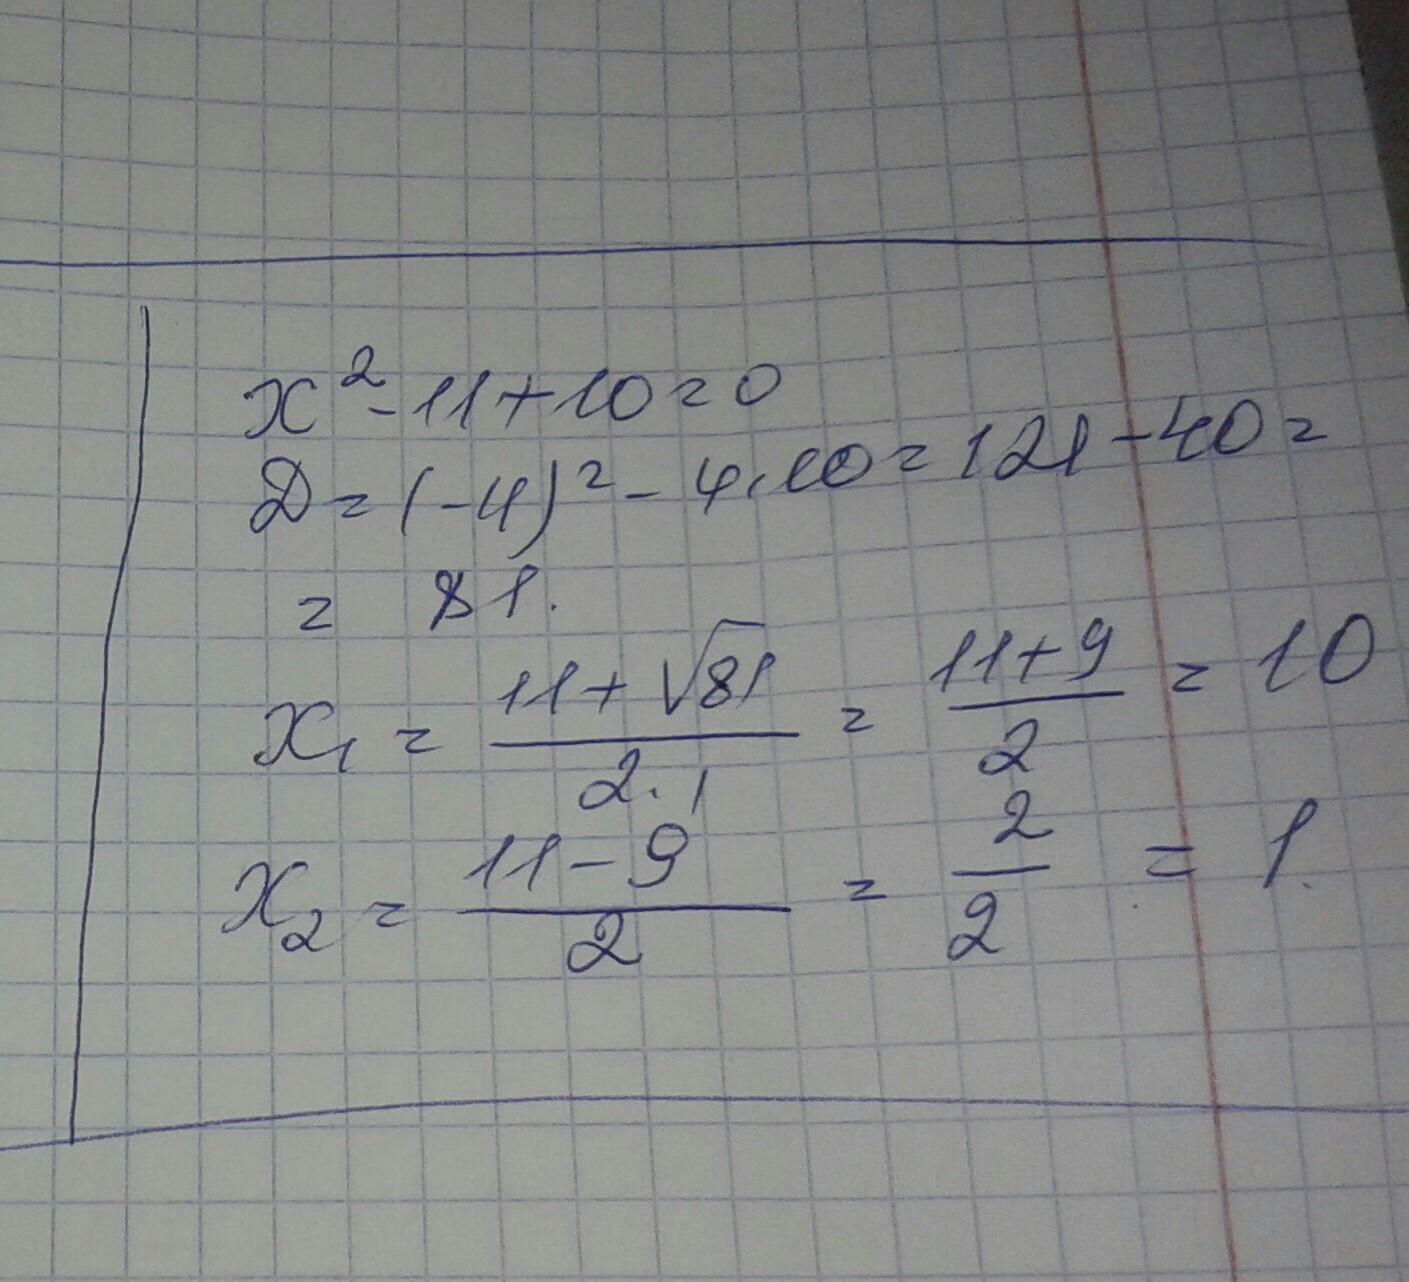 x² - 11 + 10 = 0
D = (-4)² - 4·10 = 121 - 40 =
= 81.
x₁ = (11 + √81)/(2·1) = (11 + 9)/2 = 10
x₂ = (11 - 9)/2 = 2/2 = 1.